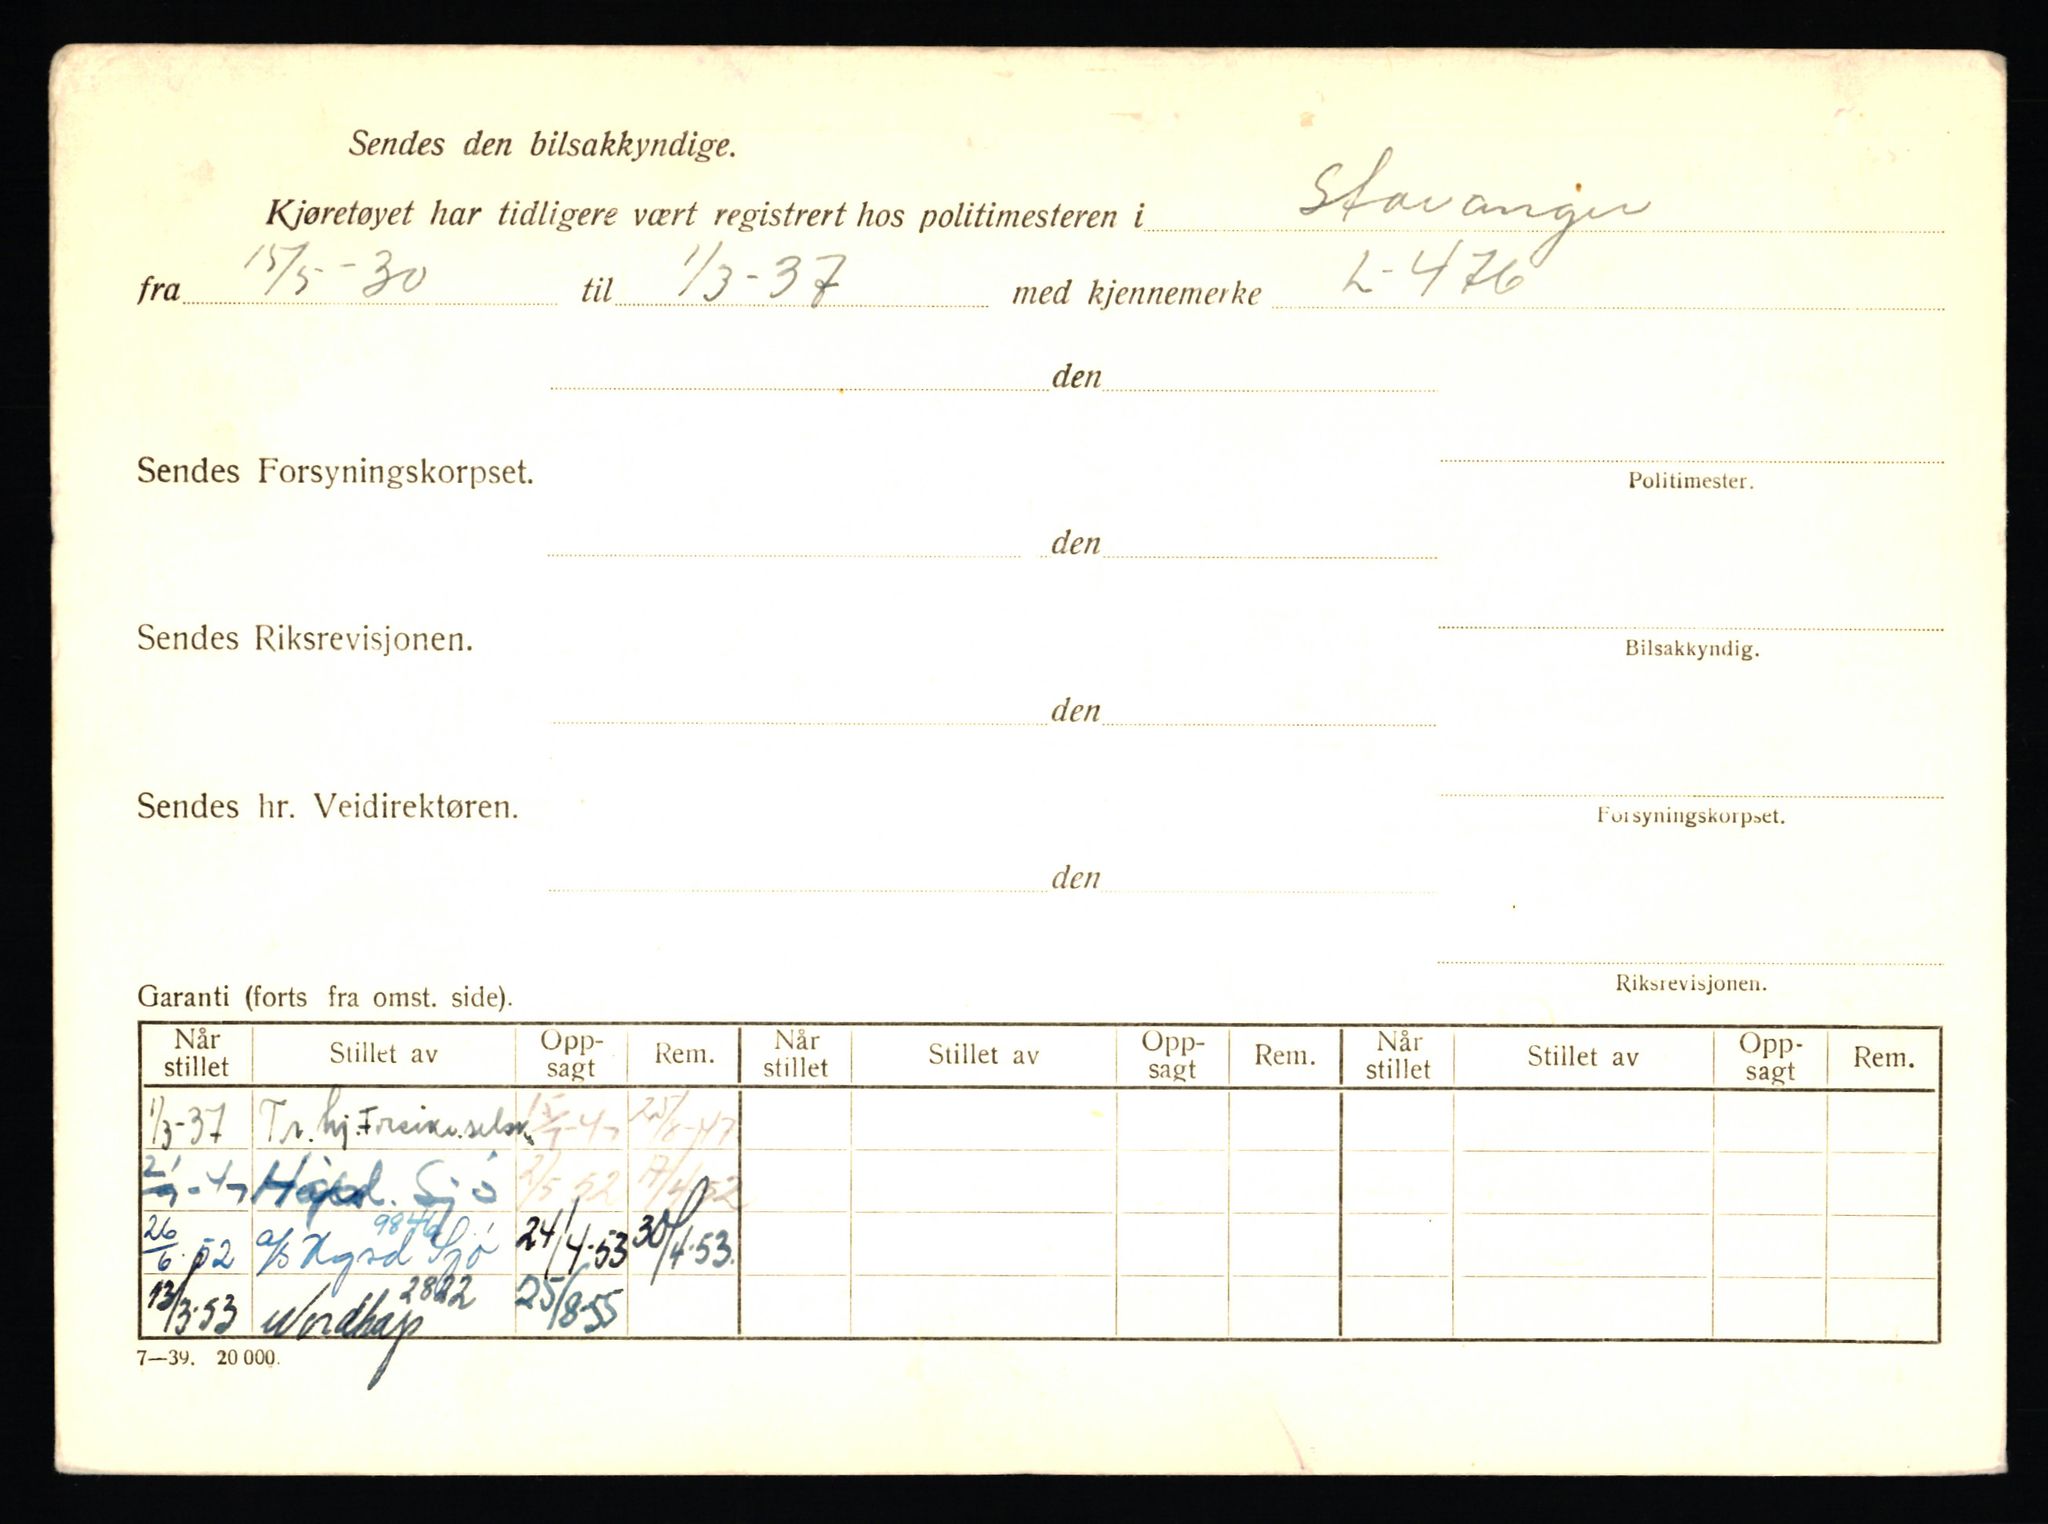 Sendes den bilsakkyndige.
Kjøretøyet har tidligere vært registrert hos politimesteren i Stavanger
fra 15/5-30 til 1/3-37 med kjennemerke L-476
den
Sendes Forsyningskorpset.
Politimester.
den
Sendes Riksrevisjonen.
Bilsakkyndig.
den
Sendes hr. Veidirektøren.
Forsyningskorpset.
den
Riksrevisjonen.
Garanti (forts fra omst. side).
Når stillet Stillet av Opp-sagt Rem. Når stillet Stillet av Opp-sagt Rem. Når stillet Stillet av Opp-sagt Rem.
1/3-37 Tr.hj. Forsikr.selsk. 25/8-47
Sjö 2/5 52 17/4 52
9846
26/6 52 a/s Sjö 24/4-53 30/4-53.
2822
13/3-53 Nordhap 25/8-55
7—39. 20 000.